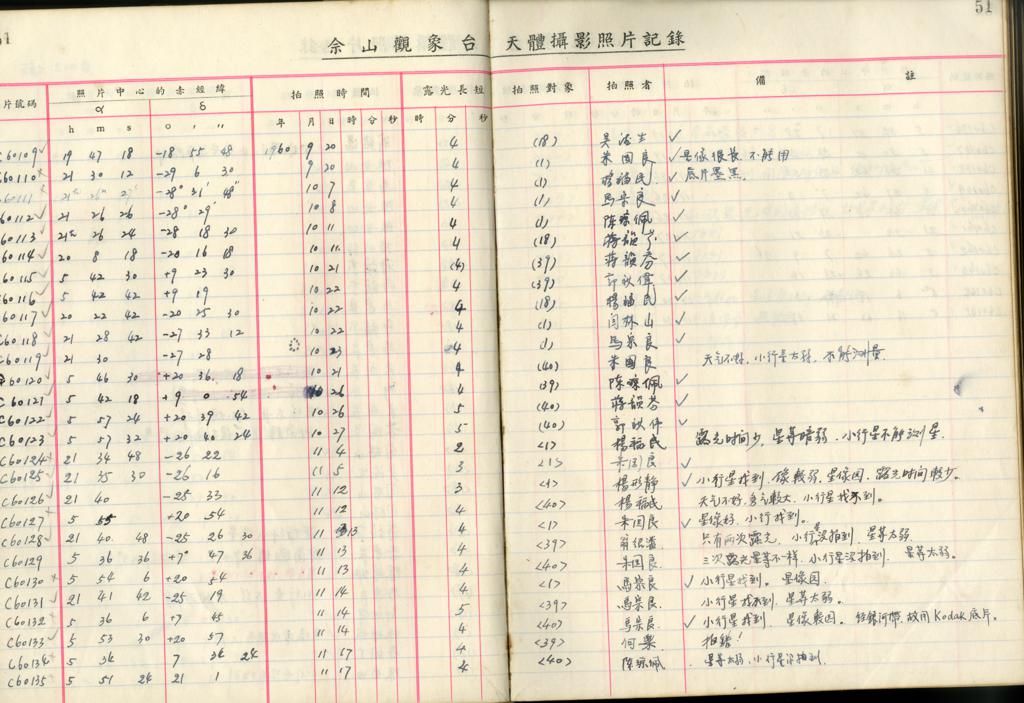 51
51
佘山觀象台 天體攝影照片記錄
片號碼 照片中心的赤經緯 拍照時間 露光長短 拍照對象 拍照者 備 註
α δ
h m s ° ′ ″ 年 月 日 時 分 秒 時 分 秒
C60109 ✓ 19 47 18 -18 55 48 1960 9 20 4 (18) ✓
60110 21 30 12 -29 6 30 9 20 4 (1) 朱国良 ✓ 星像很長 不能用
60111 -28° 31′ 48″ 10 7 4 (1) 楊福民 ✓ 底片墨黑.
60112 ✓ 21 26 26 -28° 29′ 10 8 4 (1) 馬宗良 ✓
60113 ✓ 21 26 24 -28 18 30 10 11 4 (1) 陈璨佩 ✓
60114 ✓ 20 8 18 -20 16 18 10 11 4 (18) 蒋韻芬 ✓
60115 ✓ 5 42 30 +9 23 30 10 21 (4) (39) 蒋韻芬 ✓
60116 ✓ 5 42 42 +9 19 10 22 4 (39) 郭欽偉 ✓
60117 ✓ 20 22 42 -20 25 30 10 22 4 (18) 楊福民 ✓
C60118 ✓ 21 28 42 -27 33 12 10 22 4 (1) 闫林山 ✓
C60119 ✓ 21 30 -27 28 10 23 4 (1) 馬宗良 ✓
C60120 ✓ 5 46 30 +20 36 18 10 21 4 (40) 朱国良 天气不好, 小行星太弱, 不能测量.
C60121 ✓ 5 42 18 +9 0 54 10 26 4 (39) 陈璨佩 ✓
C60122 ✓ 5 57 24 +20 39 42 10 26 5 (40) 蒋韻芬 ✓
C60123 ✓ 5 57 32 +20 40 24 10 27 5 (40) 郭欽伟 ✓
C60124 21 34 48 -26 22 11 4 2 <1> 楊福民 露光时间少, 星等暗弱, 小行星不能测量.
C60125 ✓ 21 35 30 -26 16 11 5 3 <1> 朱国良 ✓
C60126 21 40 -25 33 11 12 3 <1> 楊彤静 ✓ 小行星找到, 像較弱, 星像圆, 露光时间較少.
C60127 5 55 +20 54 11 12 4 <40> 楊福民 天气不好, 小行星找不到。
C60128 ✓ 21 40 48 -25 26 30 11 13 4 <1> 朱国良 ✓ 星像好, 小行找到。
C60129 5 36 36 +7° 47 36 11 13 4 <39> 只有两次露光, 小行星没拍到, 星等太弱.
C60130 5 54 6 +20 54 11 13 4 <40> 朱国良. 三次露光星等不一样, 小行星没拍到. 星等太弱。
C60131 21 41 42 -25 19 11 14 4 <1> 馬宗良. ✓ 小行星找到。星像圆.
C60132 5 36 6 +7 45 11 14 5 <39> 馬宗良. 小行星找不到, 星等太弱.
C60133 ✓ 5 53 30 +20 57 11 14 4 <40> 馬宗良 ✓ 小行星找到, 星像較圆。 经銀河帶, 故用 Kodak 底片.
C60134 5 34 7 34 24 11 17 4 <39> 何葉 拍錯!
C60135 5 51 24 21 1 11 17 4 <40> 陈璨佩 星等太弱, 小行星没拍到.